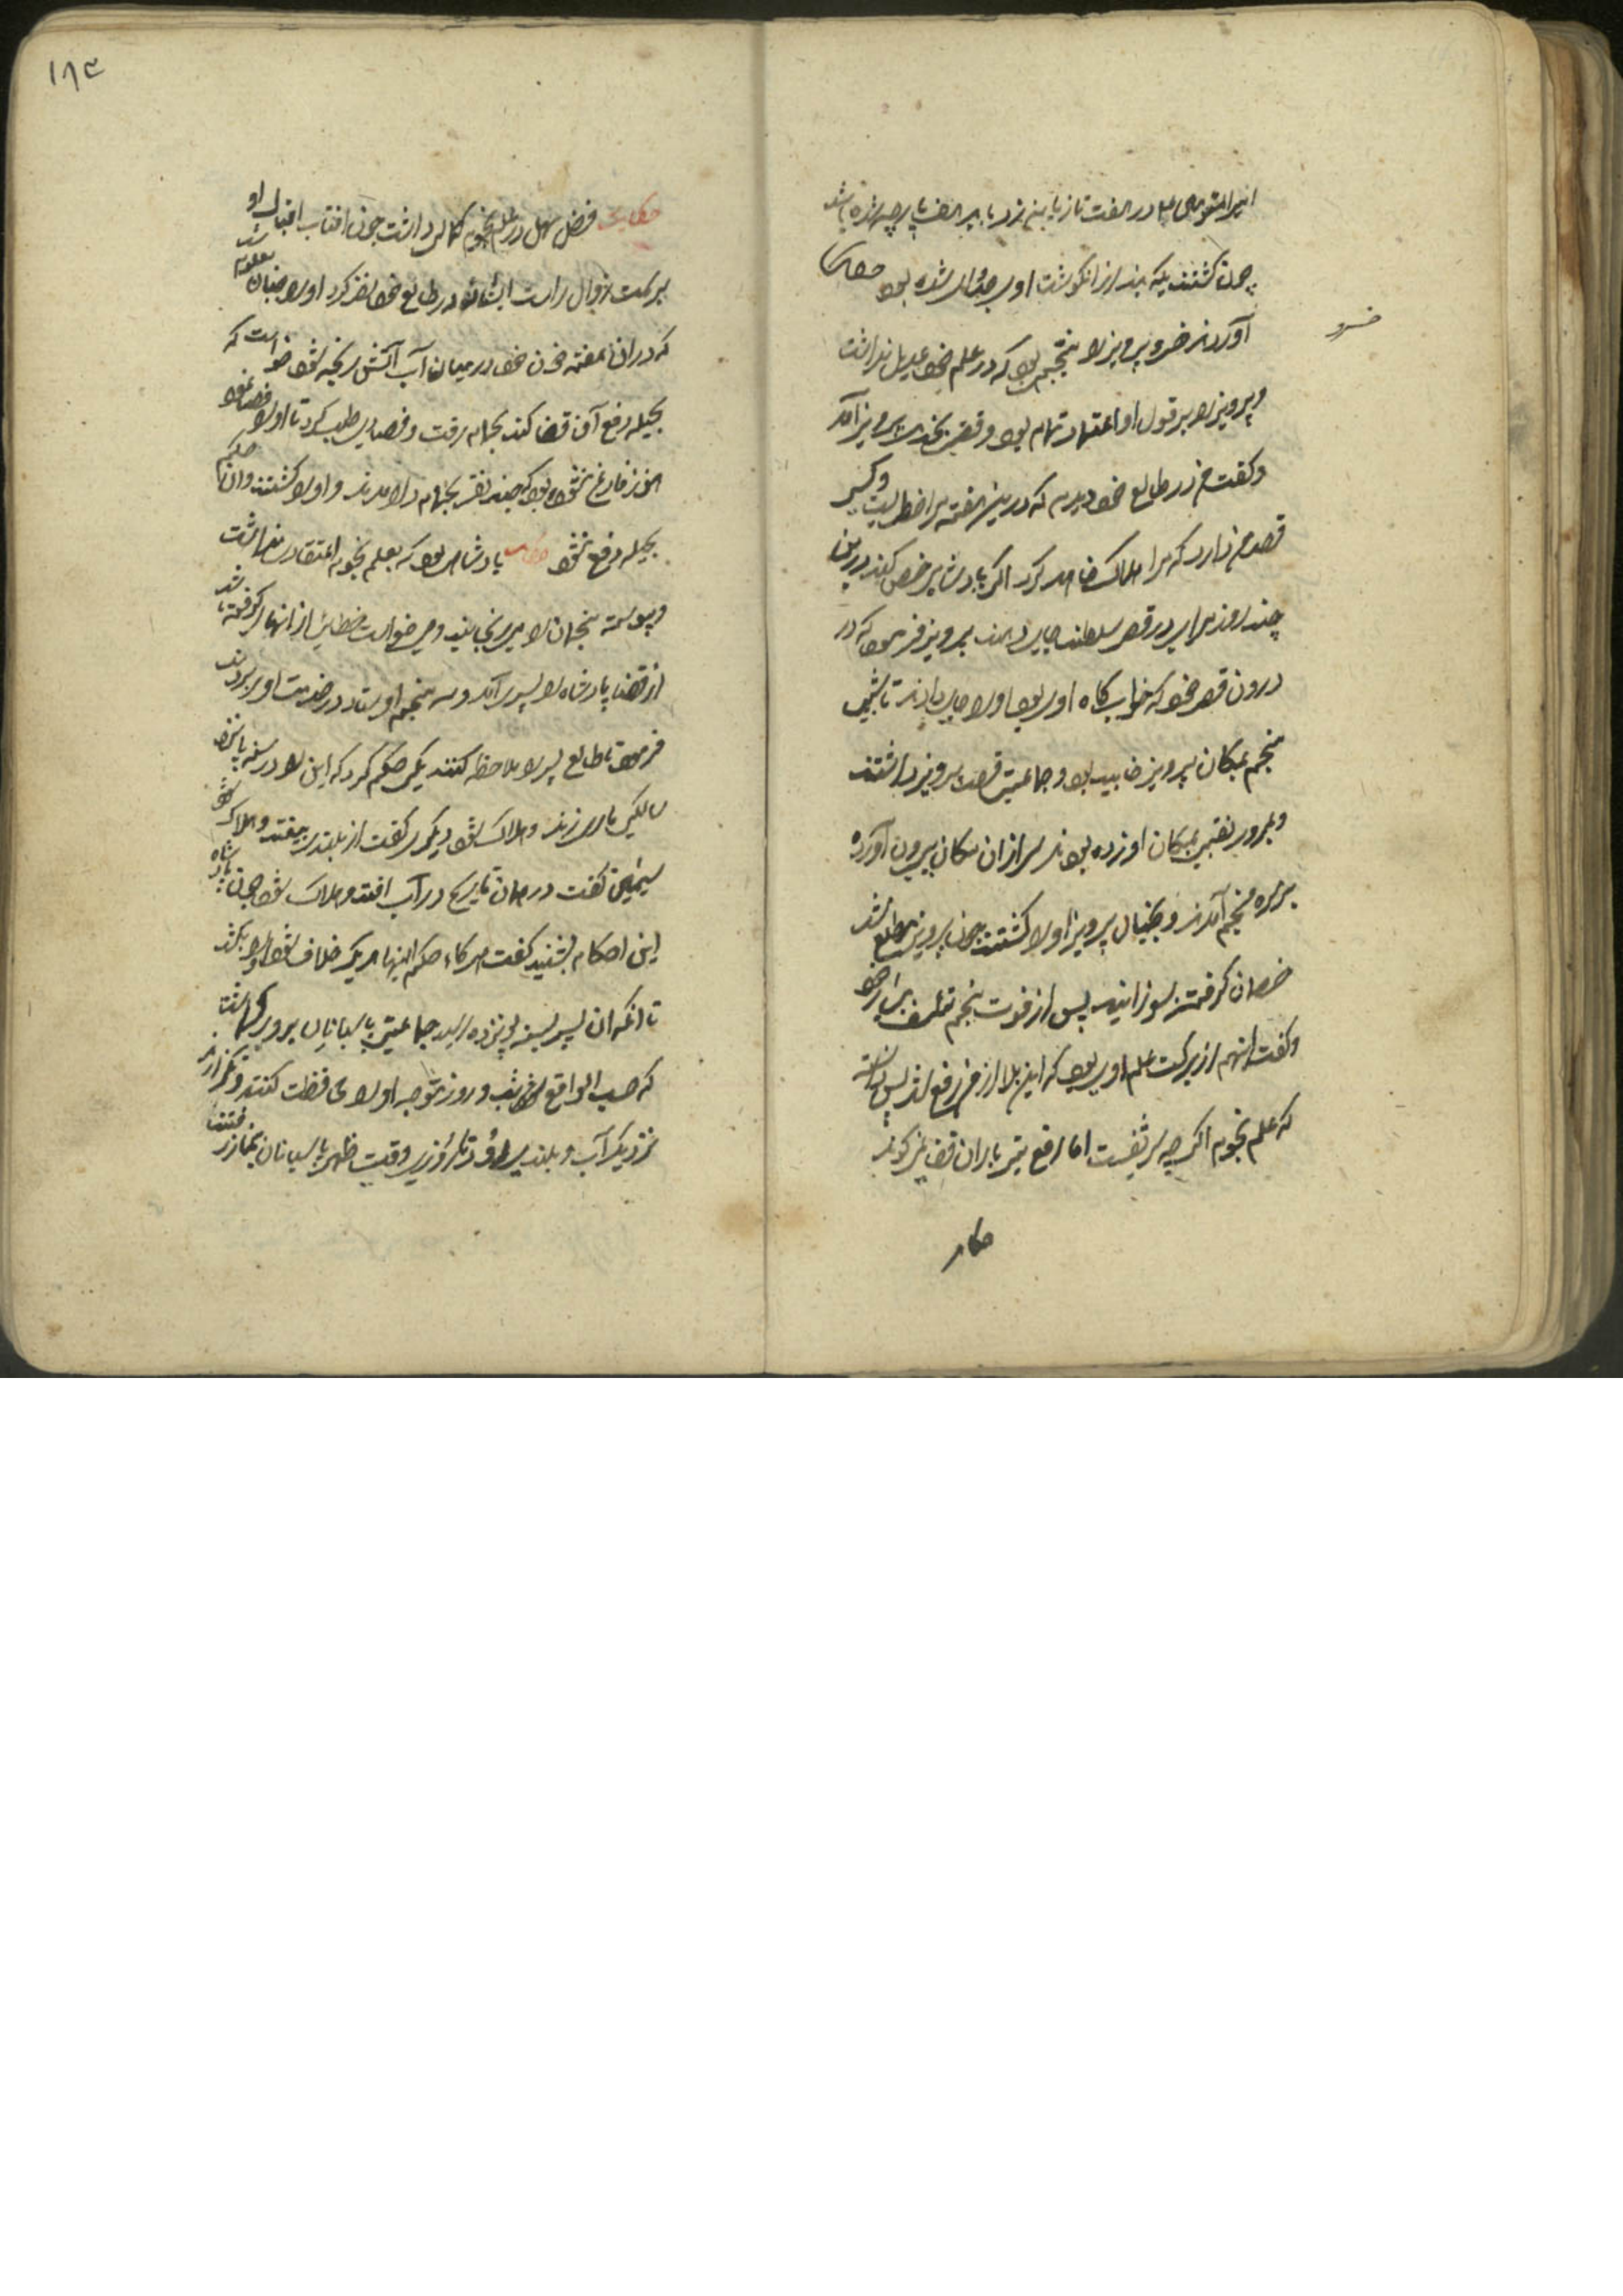 چون کشتند یکه بند از انکوشت او جدا شده بود حکایت
خسرو
آوردند خسرو پرویز را منجمی بود که در علم خود عدیل نداشت
و پرویز را بر قول او اعتماد تمام بود وقتی بخدمت پرویز آمد
و گفت من در طالع خود دیدم که درین هفته مرا خطریست و کسی
قصد من دارد که مرا هلاک خواهد کرد اگر پادشاه رخص کند درین
چند روز مرا در قصر سلطنت جای دهند پرویز فرمود که در
درون قصر خود که خواب گاه او بود او را جای دادند تا شبی
منجم بمکان پرویز خابیده بود و جماعتی قصد پرویز داشتند
و بمرور نقبی بمکان او زده بودند سر از ان مکان بیرون آورده
بر سر منجم آمدند و بخیال پرویز او را کشتند چون پرویز مطلع شد
خصمان گرفته بسوزانید پس از فوت منجم تاسف بسیار خورد
و گفت انهم از برکت علم او بود که این بلا از من رفع شد پس دانسته
که علم نجوم اگر چه شریفست اما دفع تیر باران قضا نمی کند
حکایت
۱۸۴
حکایت فضل سهل در علم نجوم کمالی داشت چون افتاب اقبال او
بر سمت زوال راست ایستاد در طالع خود نظر کرد او را چنان معلوم شد
که در ان هفته خون خود در میان آب آتش ریخته شود خواست که
بحیله دفع آن قضا کند بحمام رفت و فصادی طلب کرد تا او را فصد نمود
هنوز فارغ نشده بود که چند نفر بحمام در امدند و او را کشتند و ان حکم
بحیله دفع نشد حکایت پادشاهی بود که بعلم نجوم اعتقاد نداشت
و پیوسته منجمان را میرنجانید و می خواست خطایی از انها گرفته باشد
از قضا پادشاه را پسری آمد و سه منجم اوستاد در خدمت او بردند
فرمود تا طالع پسر را ملاحظه کنند یکی حکم کرد که این را در سن پانزده
سالگی ماری زند و هلاک شود دیگری گفت از بلندی بیفتد و هلاک شود
سیمی گفت در همان تاریخ در آب افتد و هلاک شود چون پادشاه
این احکام بشنید گفت هر گاه حکم اینها هر یک خلاف شود او را بکشد
تا انکه ان پسر بسن پانزده رسید جماعتی پاسبانان برو برگماشت
که حسب الواقع شب و روز متوجه او را محافظت کنند و نگذارند
نزدیک آب و بلندی رود تا روزی وقت ظهر پاسبانان بنماز رفتند